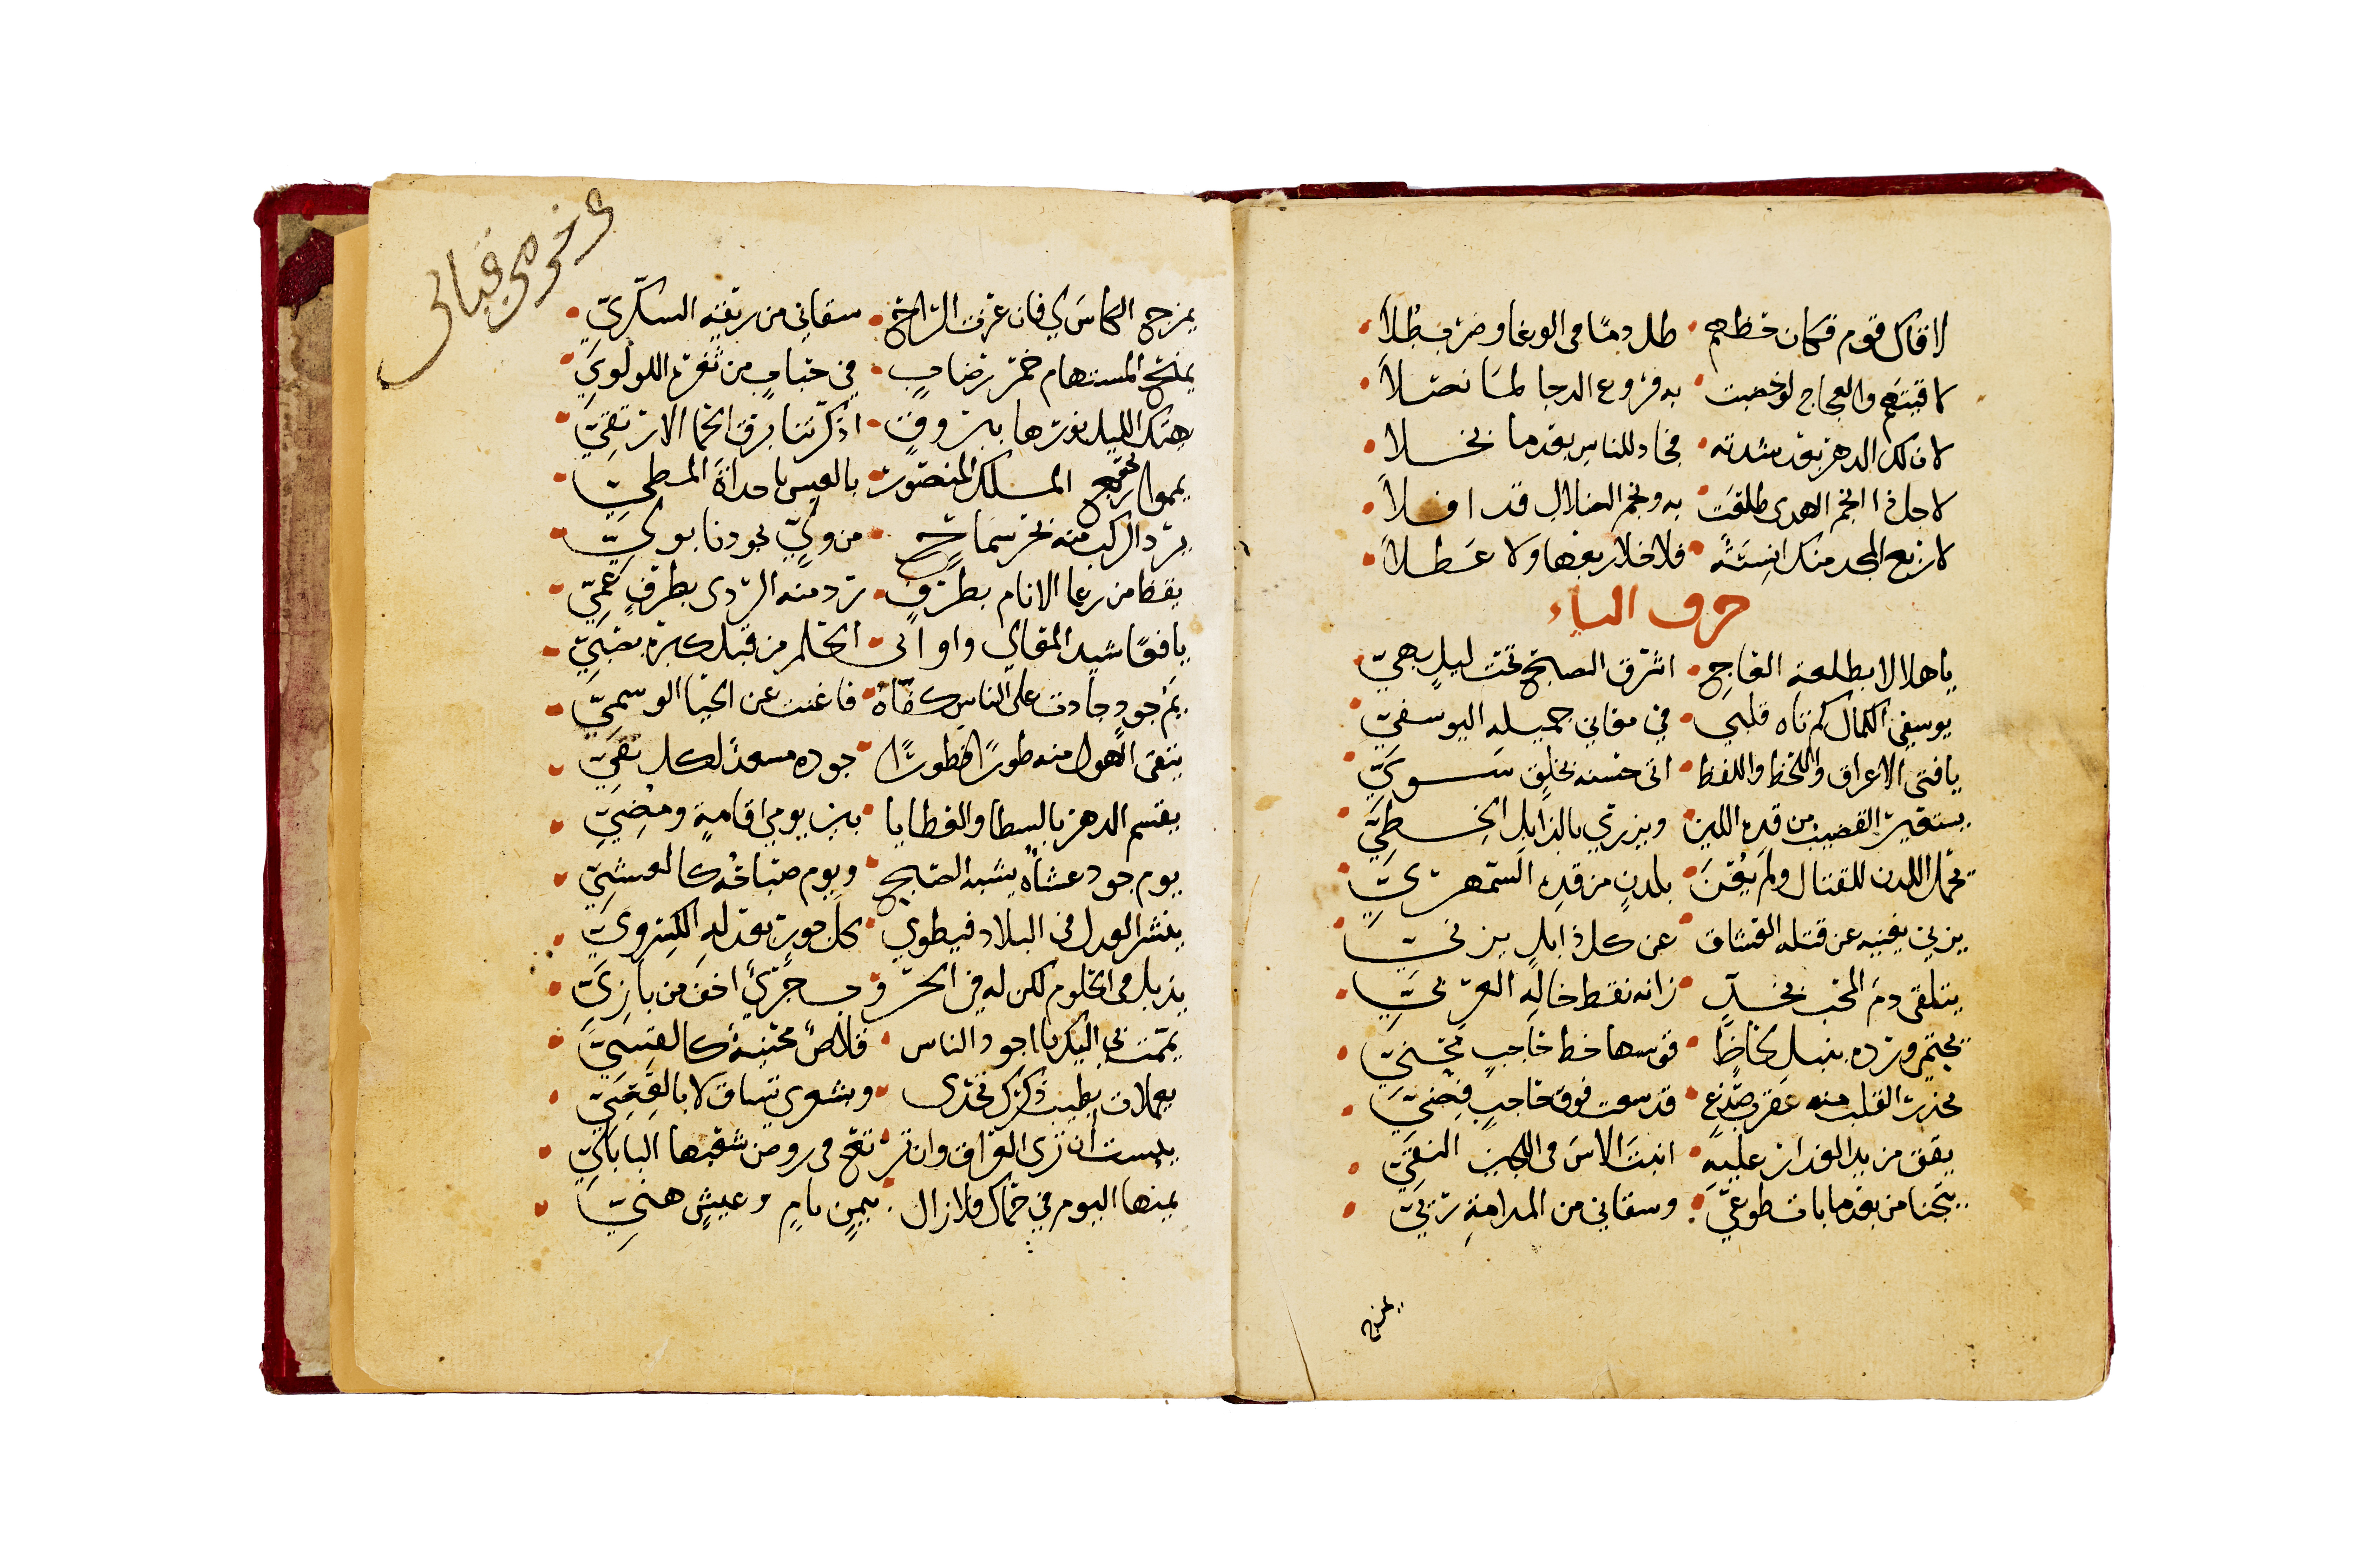 لاقاك قوم فكان حظهم • طل دما في الوغا وضرب طلا
لاقيتهم والعجاج لو خضبت • به فروع الدجا لما نصلا
لان لك الدهر بعد شدته • فجاد للناس بعدما بخلا
لاجل ذا انجم الهدى طلعت • به ونجم الضلال قد افلا
لا ربع المجد منك انسته • فلا خلا ربعها ولا عطلا
حرف الياء
يا هلالا بطلعة الفاجح • اشرق الصبح تحت ليل بهي
يوسفي الكمال كم تاه قلبي • في معاني جميله اليوسفي
يا فتى الاعراق واللحظ واللفظ • اتى حسنه بخلق سوي
يستعير القضيب من قده اللين • ويزري بالذابل الخطي
يحمل اللدن للقتال ولم يغن • بلدن من قده السمهري
يزني يغنيه عن قتله العشاق • عن كل ذابل يزني
يتلقى دم المحب بخد • زانه نقط خاله العربي
يحتمي ورده بنبل لحاظ • قوسها خط حاجب محني
يحذر القلب منه عقرب صدغ • قد سعت فوق حاجب فضي
يقق من يد العذار عليه • انبت الاس في اللجين النقي
يتجنا من بعدما بات طوعي • وسقاني من المدامة ربي
يمزج
يمزج الكاس لي فان عزت الراح • سقاني من ريقه السكري
يمنح المستهام خمر رضاب • في حباب من ثغره اللولوي
يهتك الليل نورها ببروق • اذكرتنا برق الحما الارتقي
يمموا ربع الملك المنصور • بالعيس يا حداة المطي
يرد الركب منه بحر سماح • من ولي بجودنا بولي
يقظا من رعا الانام بطرف • ترد منه الردى بطرف عمي
يافعا شيد المعالي واوتى • الحلم من قبل كبره بعتي
يم جود جادت على الناس كفاه • فاغنت عن الحيا الوسمي
يتقى الهول منه طورا فطورا • جوده مسعد لكل تقي
يقسم الدهر بالسطا والعطايا • بين يومي اقامة ومضي
يوم جود عشاه يشبه الصبح • ويوم صباحه كالعشي
ينشر العدل في البلاد فيطوي • كل جور بعدله الكسروي
يذبل في الحلوم لكن له في الحروب • جري اخف من بازي
يممت بي اليك يا اجود الناس • قلاص محنية كالقسي
يعملات بطيب ذكرك تحدى • وبشعري تساق لا بالعصي
يئست ان ترى العراق وان ترتع • في روض شعبها البابلي
يمنها اليوم في حماك فلا زال • بيمن نام وعيش هني